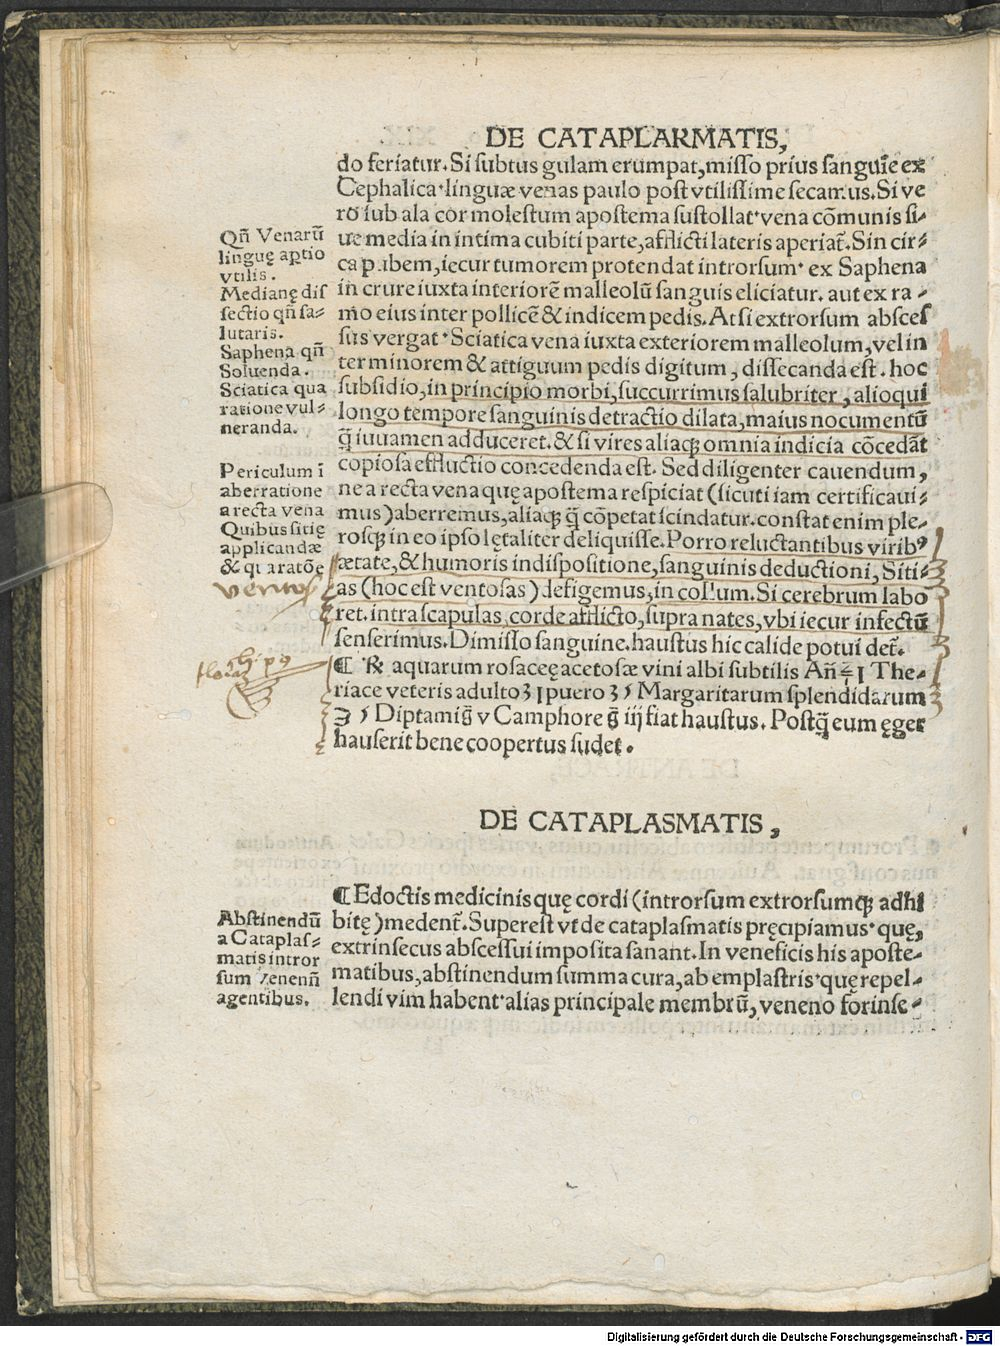 DE CATAPLARMATIS,
do feriatur. Si subtus gulam erumpat, misso prius sanguīe ex
Cephalica · linguæ venas paulo post vtilissime secamus. Si ve
ro sub ala cor molestum apostema sustollat · vena cōmunis si⸗
ue media in intima cubiti parte, afflicti lateris aperiat̄. Sin cir⸗
ca pubem, iecur tumorem protendat introrsum · ex Saphena
in crure iuxta interiorē malleolū sanguis eliciatur. aut ex ra⸗
mo eius inter pollicē & indicem pedis. At si extrorsum absces
sus vergat · Sciatica vena iuxta exteriorem malleolum, vel in
ter minorem & attiguum pedis digitum, dissecanda est. hoc
subsidio, in principio morbi, succurrimus salubriter, alioqui
longo tempore sanguinis detractio dilata, maius nocumentū
q̄ iuuamen adduceret. & si vires aliaqꝫ omnia indicia cōcedāt
copiosa effluctio concedenda est. Sed diligenter cauendum,
ne a recta vena quę apostema respiciat (sicuti iam certificaui⸗
mus) aberremus, aliaqꝫ q̄ cōpetat scindatur. constat enim ple⸗
rosqꝫ in eo ipso lętaliter deliquisse. Porro reluctantibus viribꝰ
ætate, & humoris indispositione, sanguinis deductioni, Siti⸗
as (hoc est ventosas) defigemus, in collum. Si cerebrum labo
ret. intra scapulas, corde afflicto, supra nates, vbi iecur infectū
senserimus. Dimisso sanguine. haustus hic calide potui det̄.
¶ ℞ aquarum rosaceę acetosæ vini albi subtilis Añ ℥ ı The⸗
riace veteris adulto ʒ ı puero ʒ ſ Margaritarum splendidarum
℈ ſ Diptami g̃ v Camphore g̃ iij fiat haustus. Postq̄ eum ęger
hauserit bene coopertus sudet.
Qñ Venarū
linguę aptio
vtilis.
Medianę dis
sectio qñ sa⸗
lutaris.
Saphena qñ
Soluenda.
Sciatica qua
ratione vul⸗
neranda.
Periculum ī
aberratione
a recta vena
Quibus sitię
applicandæ
& q aratōę
ventos
DE CATAPLASMATIS,
¶ Edoctis medicinis quę cordi (introrsum extrorsumqꝫ adhi
bitę) medent̄. Superest vt de cataplasmatis pręcipiamus · quę,
extrinsecus abscessui imposita sanant. In veneficis his aposte⸗
matibus, abstinendum summa cura, ab emplastris · quę repel⸗
lendi vim habent · alias principale membrū, veneno forinse⸗
Abstinendū
a Cataplas⸗
matis intror
sum venenū
agentibus.
Digitalisierung gefördert durch die Deutsche Forschungsgemeinschaft - DFG